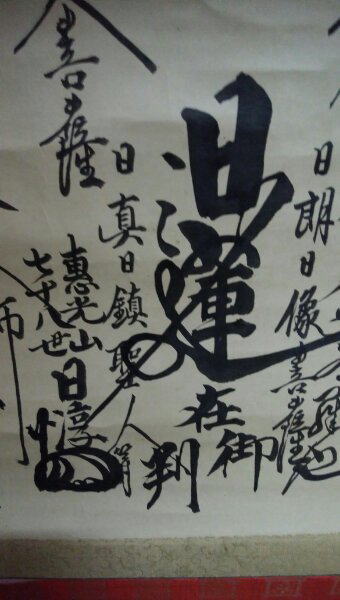 日朗日像菩薩
日蓮
在御判
日真日鎮聖人等
菩薩
惠光山
七十八世
日惇
師